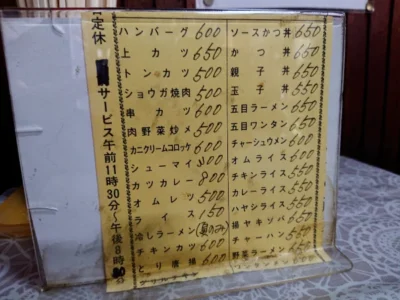 定休
サービス午前11時30分〜午後8時
ハンバーグ 600
上カツ 650
トンカツ 500
ショウガ焼肉 500
串カツ 600
肉野菜炒メ 500
カニクリームコロッケ 600
シューマイ
カツカレー 800
オムレツ 500
ライス 150
冷しラーメン(夏のみ)
チキンカツ 600
とり唐揚 600
ソースかつ丼 650
かつ丼 650
親子丼 650
玉子丼 650
五目ラーメン 650
五目ワンタン 650
チャーシュウメン 600
オムライス 600
チキンライス 550
カレーライス 550
ハヤシライス 550
揚ヤキソバ 650
チャーハン 550
野菜ラーメン 600